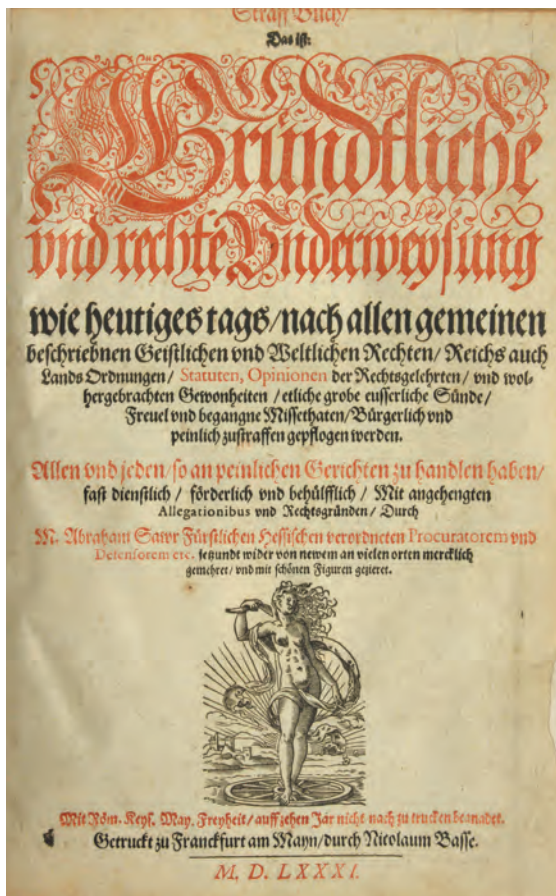 Straff Buch/
Das ist:
Gründtliche
vnd rechte Vnderweysung
wie heutiges tags/nach allen gemeinen
beschriebnen Geistlichen vnd Weltlichen Rechten/ Reichs auch
Lands Ordnungen/ Statuten, Opinionen der Rechtsgelehrten/ vnd wol-
hergebrachten Gewonheiten /etliche grobe eusserliche Sünde/
Freuel vnd begangne Missethaten/Bürgerlich vnd
peinlich zustraffen gepflogen werden.
Allen vnd jeden/so an peinlichen Gerichten zu handlen haben/
fast dienstlich / förderlich vnd behülfflich / Mit angehengten
Allegationibus vnd Rechtsgründen/ Durch
M. Abraham Sawr Fürstlichen Hessischen verordneten Procuratorem vnd
Defensorem etc. jetzundt wider von newem an vielen orten mercklich
gemehret/ vnd mit schönen Figuren gezieret.
Mit Röm. Keys. May. Freyheit/ auff zehen Jar nicht nach zu trucken begnadet.
Getruckt zu Franckfurt am Mayn/durch Nicolaum Basse.
M. D. LXXXI.